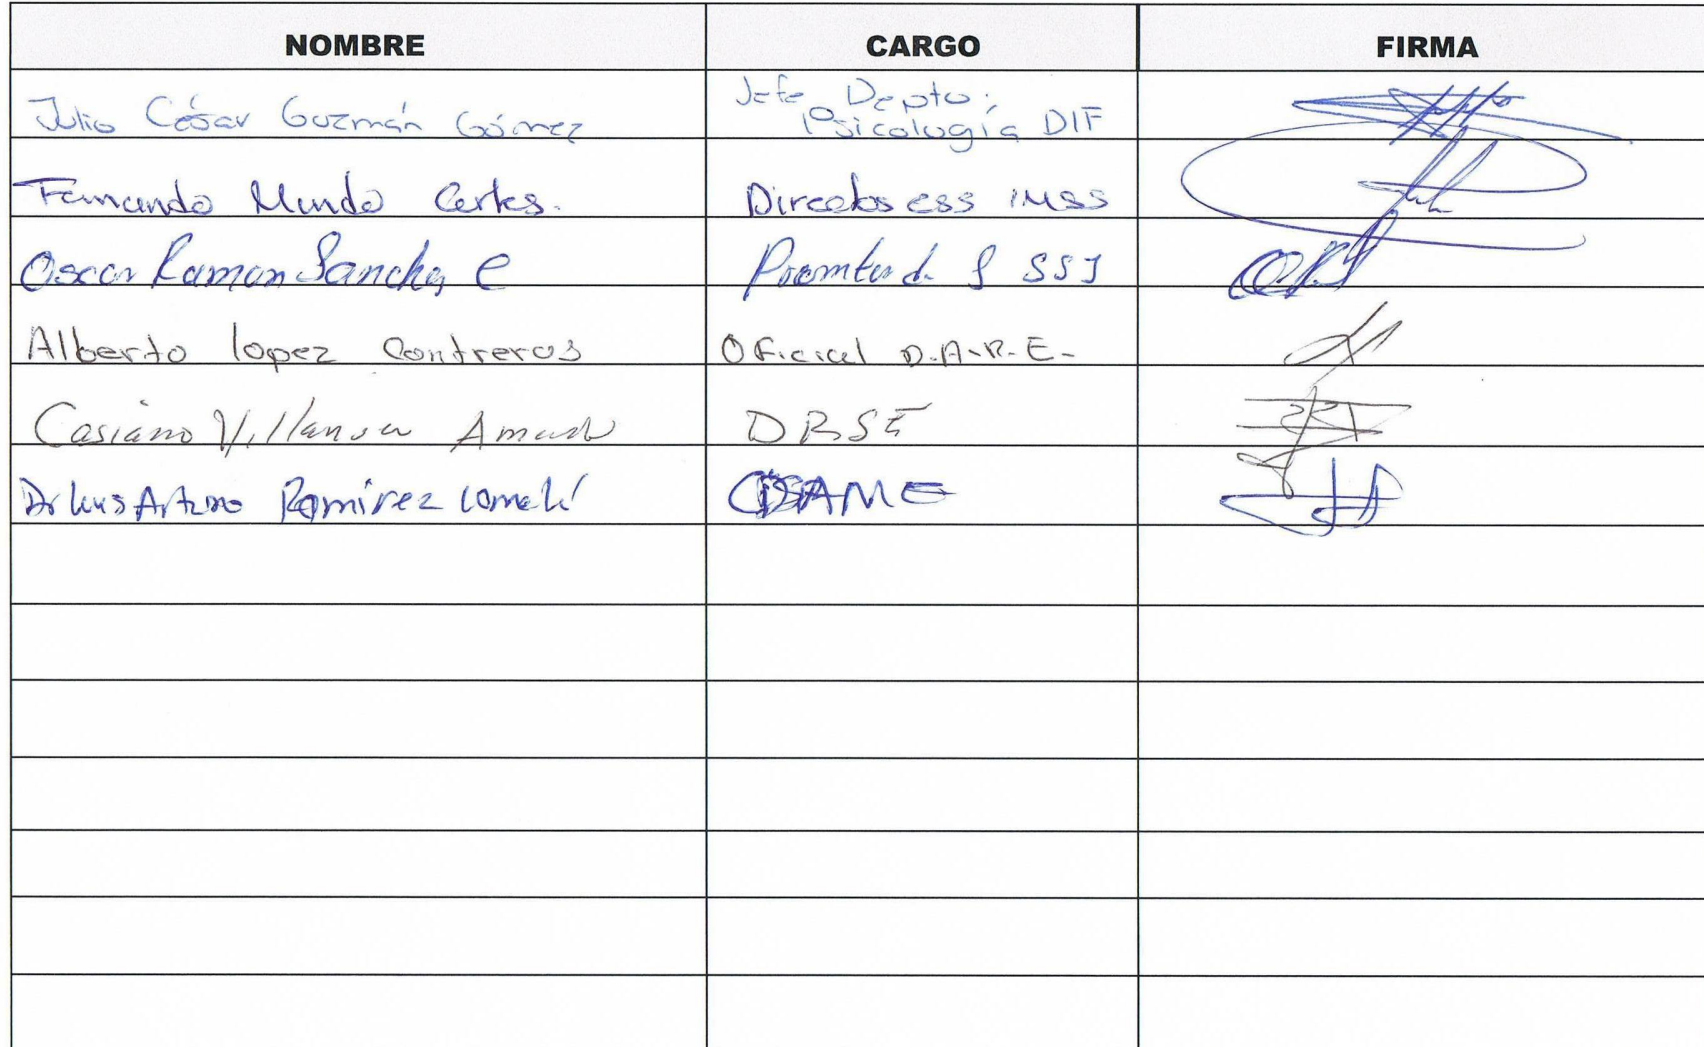 NOMBRE CARGO FIRMA
Julio César Guzmán Gómez Jefe Depto. Psicología DIF
Fernando Mundo Cortes. Director CSS IMSS
Oscar Ramon Sanchez C Promotor de S SSJ
Alberto lopez Contreras Oficial D.A.R.E.
Casiano Villanueva DRSE
Dr Luis Arturo Ramirez Lomelí CISAME